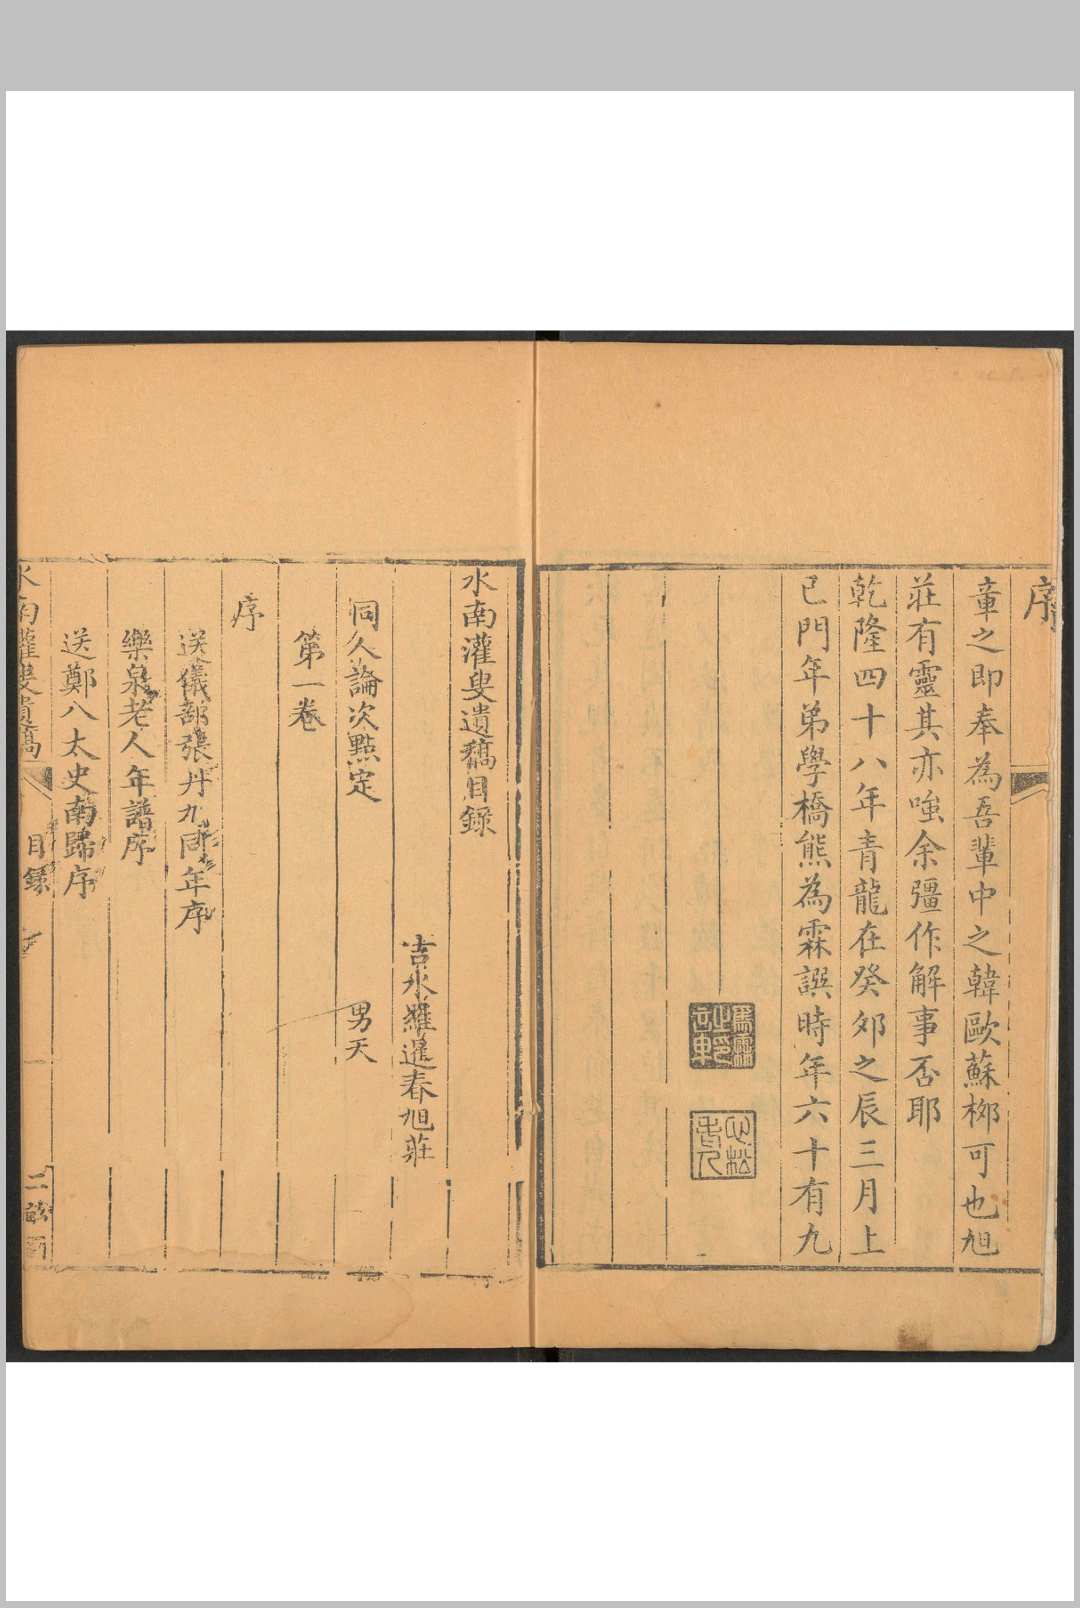 序
章之即奉為吾軰中之韓歐蘇栁可也旭
莊有靈其亦嗤余彊作解事否耶
乾隆四十八年青龍在癸夘之辰三月上
巳門年弟學橋熊為霖譔時年六十有九
水南灌叟遺稿目錄
吉水羅暹春旭莊
同久論次點定
男天
第一卷
序
送儀部張丹九同年序
樂泉老人年譜序
送鄭八太史南歸序
水南灌叟遺稿
目錄
一